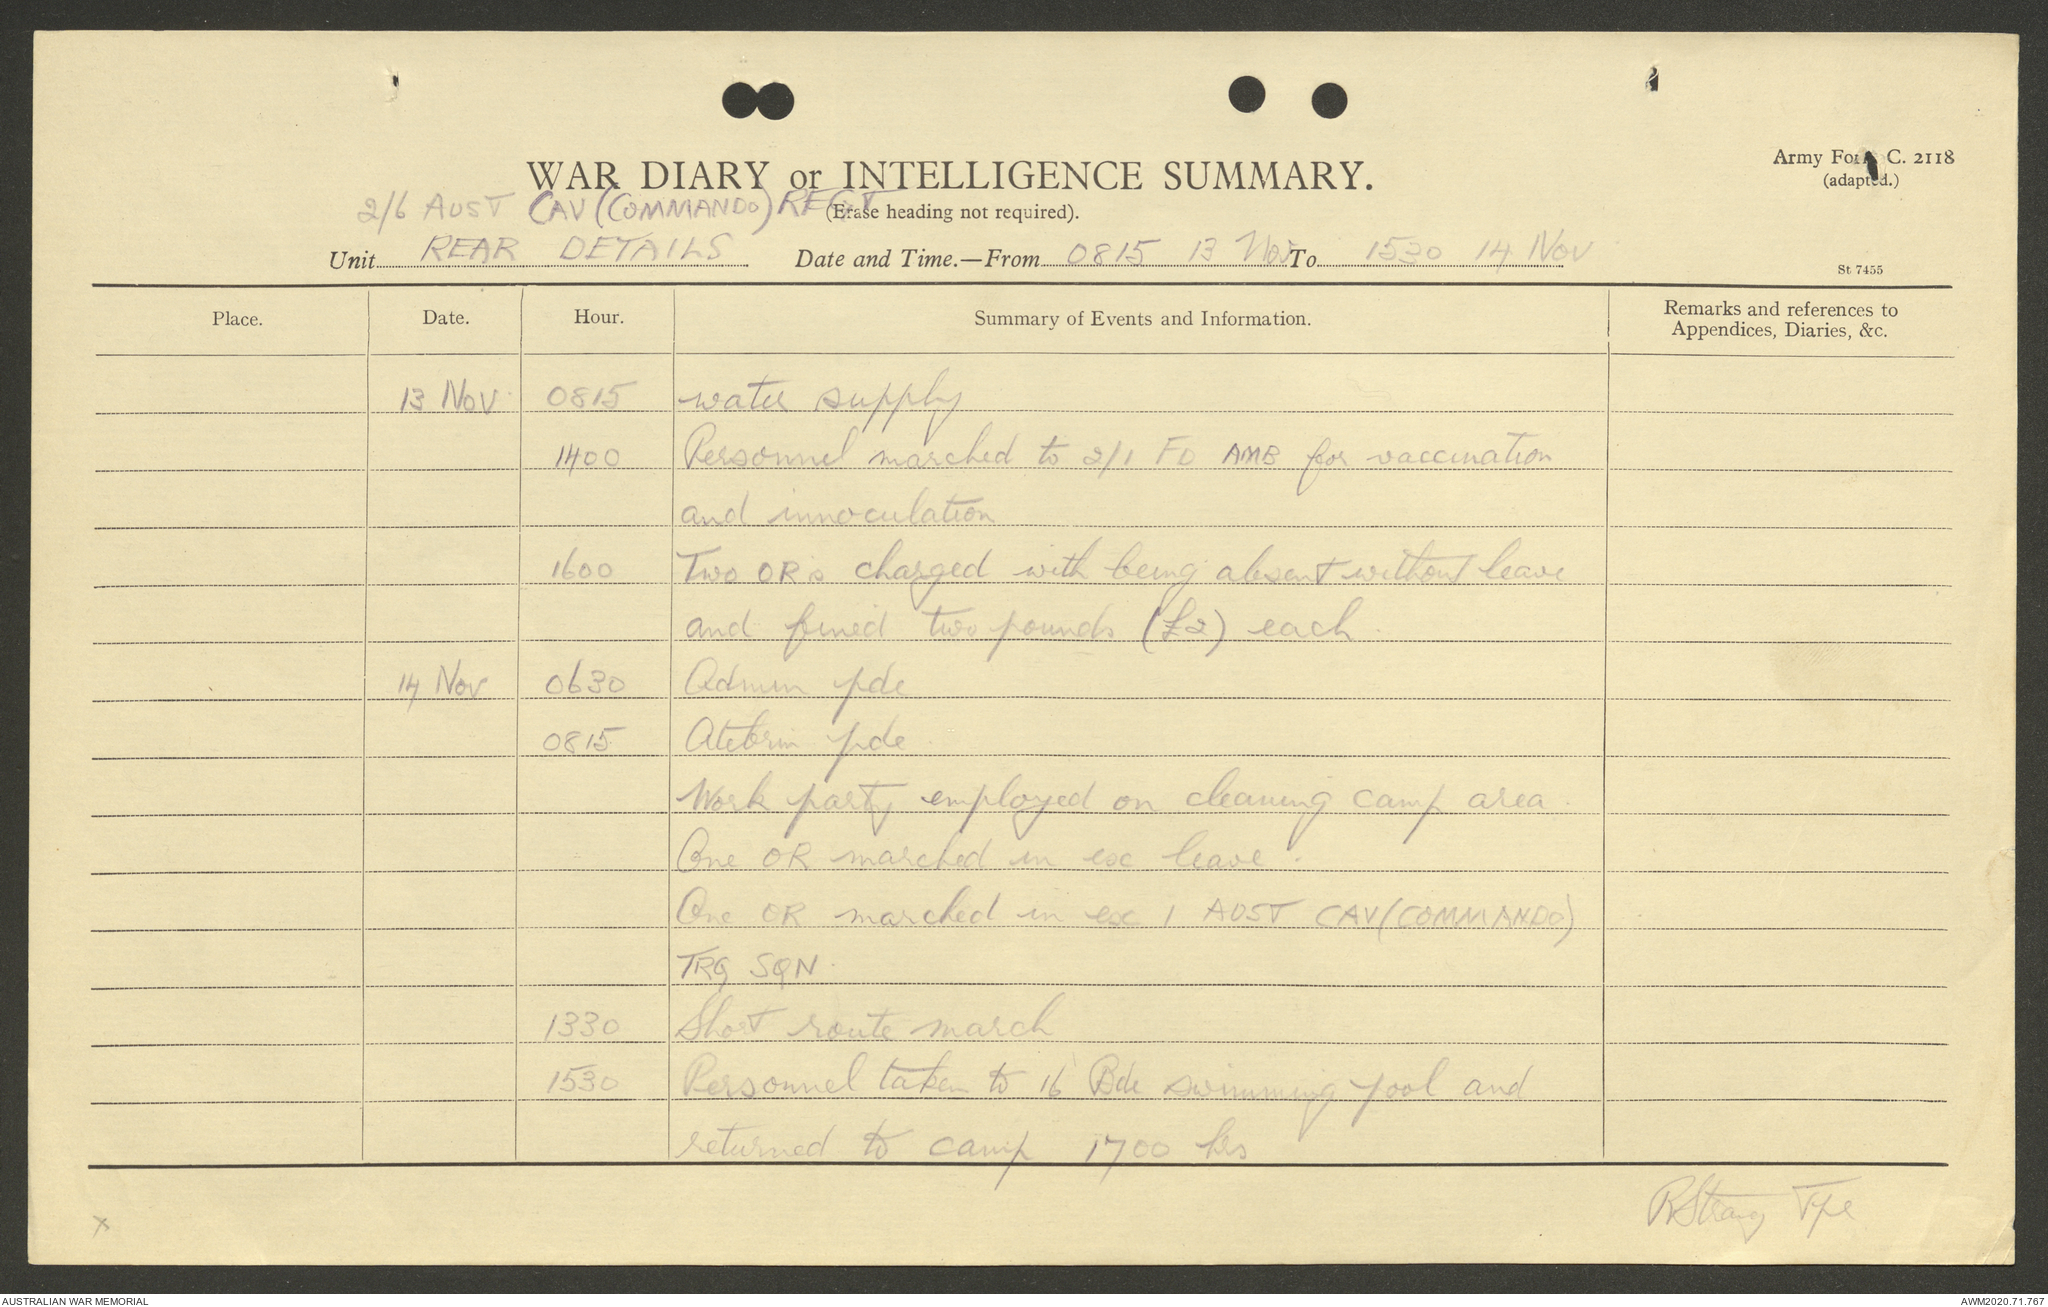 WAR DIARY or INTELLIGENCE SUMMARY.
Army Form C. 2118
(adapted.)
2/6 AUST CAV (COMMANDO) REGT
(Erase heading not required).
Unit REAR DETAILS Date and Time.—From 0815 13 Nov To 1530 14 Nov
St 7455
Place. Date. Hour. Summary of Events and Information. Remarks and references to
Appendices, Diaries, &c.
13 Nov 0815 water supply
1400 Personnel marched to 2/1 FD AMB for vaccination
and innoculation
1600 Two ORs charged with being absent without leave
and fined two pounds (£2) each.
14 Nov 0630 Admin pde
0815 Atebrin pde.
Work party employed on cleaning camp area.
One OR marched in exc leave.
One OR marched in exc 1 AUST CAV (COMMANDO)
TRG SQN.
1330 Short route march
1530 Personnel taken to 16 Bde swimming pool and
returned to camp 1700 hrs
Tpr
x
AUSTRALIAN WAR MEMORIAL
AWM2020.71.767